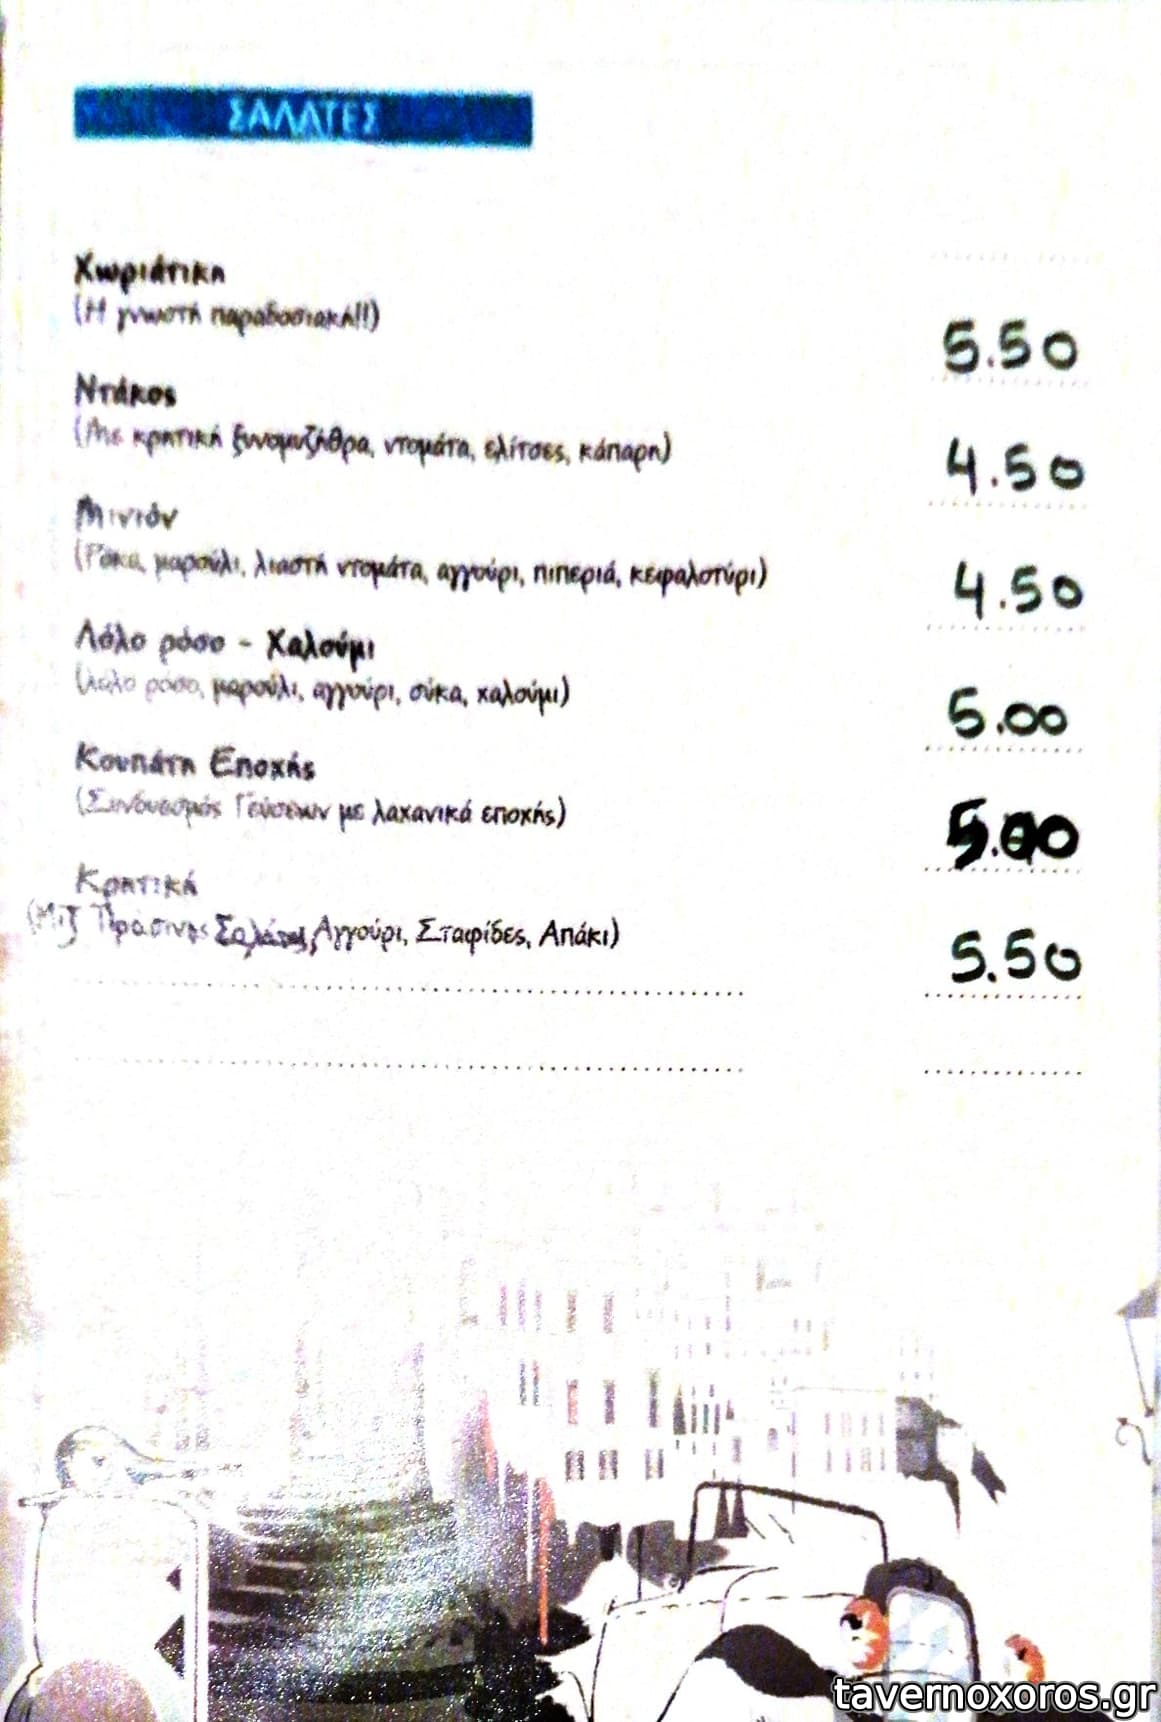 ΣΑΛΑΤΕΣ
Χωριάτικη
(Η γνωστή παραδοσιακή!!)
5.50
Ντάκος
(Με κρητική ξυνομυζήθρα, ντομάτα, ελίτσες, κάπαρη)
4.50
Μινιόν
(Ρόκα, μαρούλι, λιαστή ντομάτα, αγγούρι, πιπεριά, κεφαλοτύρι)
4.50
Λόλο ρόσο - Χαλούμι
(λόλο ρόσο, μαρούλι, αγγούρι, σύκα, χαλούμι)
5.00
Κουπάτη Εποχής
(Συνδυασμός Γεύσεων με λαχανικά εποχής)
5.00
Κρητικά
(Μιξ Πράσινης Σαλάτας, Αγγούρι, Σταφίδες, Απάκι)
5.50
tavernoxoros.gr